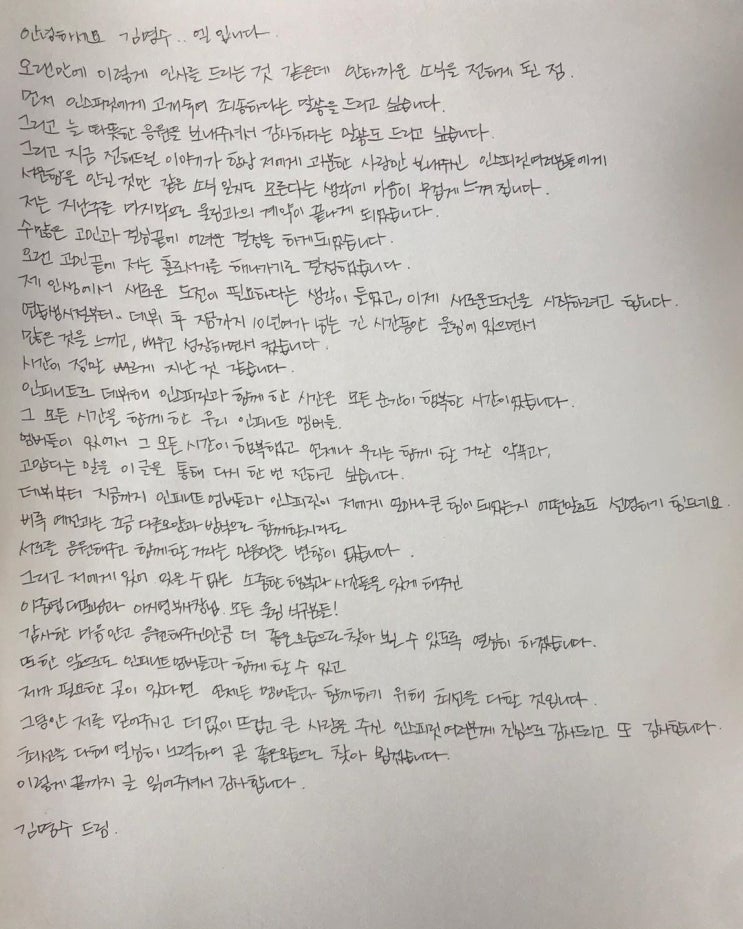 안녕하세요 김명수.. 엘 입니다.
오랜만에 이렇게 인사를 드리는 것 같은데 안타까운 소식을 전하게 된 점.
먼저 인스피릿에게 고개숙여 죄송하다는 말씀을 드리고 싶습니다.
그리고 늘 따뜻한 응원을 보내주셔서 감사하다는 말씀도 드리고 싶습니다.
그리고 지금 전해드릴 이야기가 항상 저에게 과분한 사랑만 보내주신 인스피릿여러분들에게
서운함을 안길 것만 같은 소식 일지도 모른다는 생각에 마음이 무겁게 느껴집니다.
저는 지난주를 마지막으로 울림과의 계약이 끝나게 되었습니다.
수많은 고민과 결심끝에 어려운 결정을 하게되었습니다.
오랜 고민끝에 저는 홀로서기를 해나가기로 결정했습니다.
제 인생에서 새로운 도전이 필요하다는 생각이 들었고, 이제 새로운도전을 시작하려고 합니다.
연습생시절부터.. 데뷔 후 지금까지 10년여가 넘는 긴 시간동안 울림에 있으면서
많은 것을 느끼고, 배우고 성장하면서 컸습니다.
시간이 정말 빠르게 지난 것 같습니다.
인피니트로 데뷔해 인스피릿과 함께 한 시간은 모든 순간이 행복한 시간이었습니다.
그 모든 시간을 함께 한 우리 인피니트 멤버들.
멤버들이 있어서 그 모든 시간이 행복했고 언제나 우리는 함께 할 거란 약속과,
고맙다는 말을 이 글을 통해 다시 한 번 전하고 싶습니다.
데뷔부터 지금까지 인피니트멤버들과 인스피릿이 저에게 얼마나 큰 힘이 되었는지 어떤말로도 설명하기 힘드네요.
비록 예전과는 조금 다른모양과 방식으로 함께할지라도
서로를 응원해주고 함께할 거라는 믿음만은 변함이 없습니다.
그리고 저에게 있어 잊을 수 없는 소중한 행복과 시간들을 있게 해주신
이중엽대표님과 이시영부사장님 모든 울림 식구분들!
감사한 마음안고 응원해주신만큼 더 좋은모습으로 찾아 뵐 수 있도록 열심히 하겠습니다.
또한 앞으로도 인피니트멤버들과 함께 할 수 있고
제가 필요한 곳이 있다면 언제든 멤버들과 함께하기 위해 최선을 다할 것입니다.
그동안 저를 믿어주시고 더없이 뜨겁고 큰 사랑을 주신 인스피릿여러분께 진심으로 감사드리고 또 감사합니다.
최선을 다해 열심히 노력하여 곧 좋은모습으로 찾아 뵙겠습니다.
이렇게 끝까지 글 읽어주셔서 감사합니다.
김명수 드림.